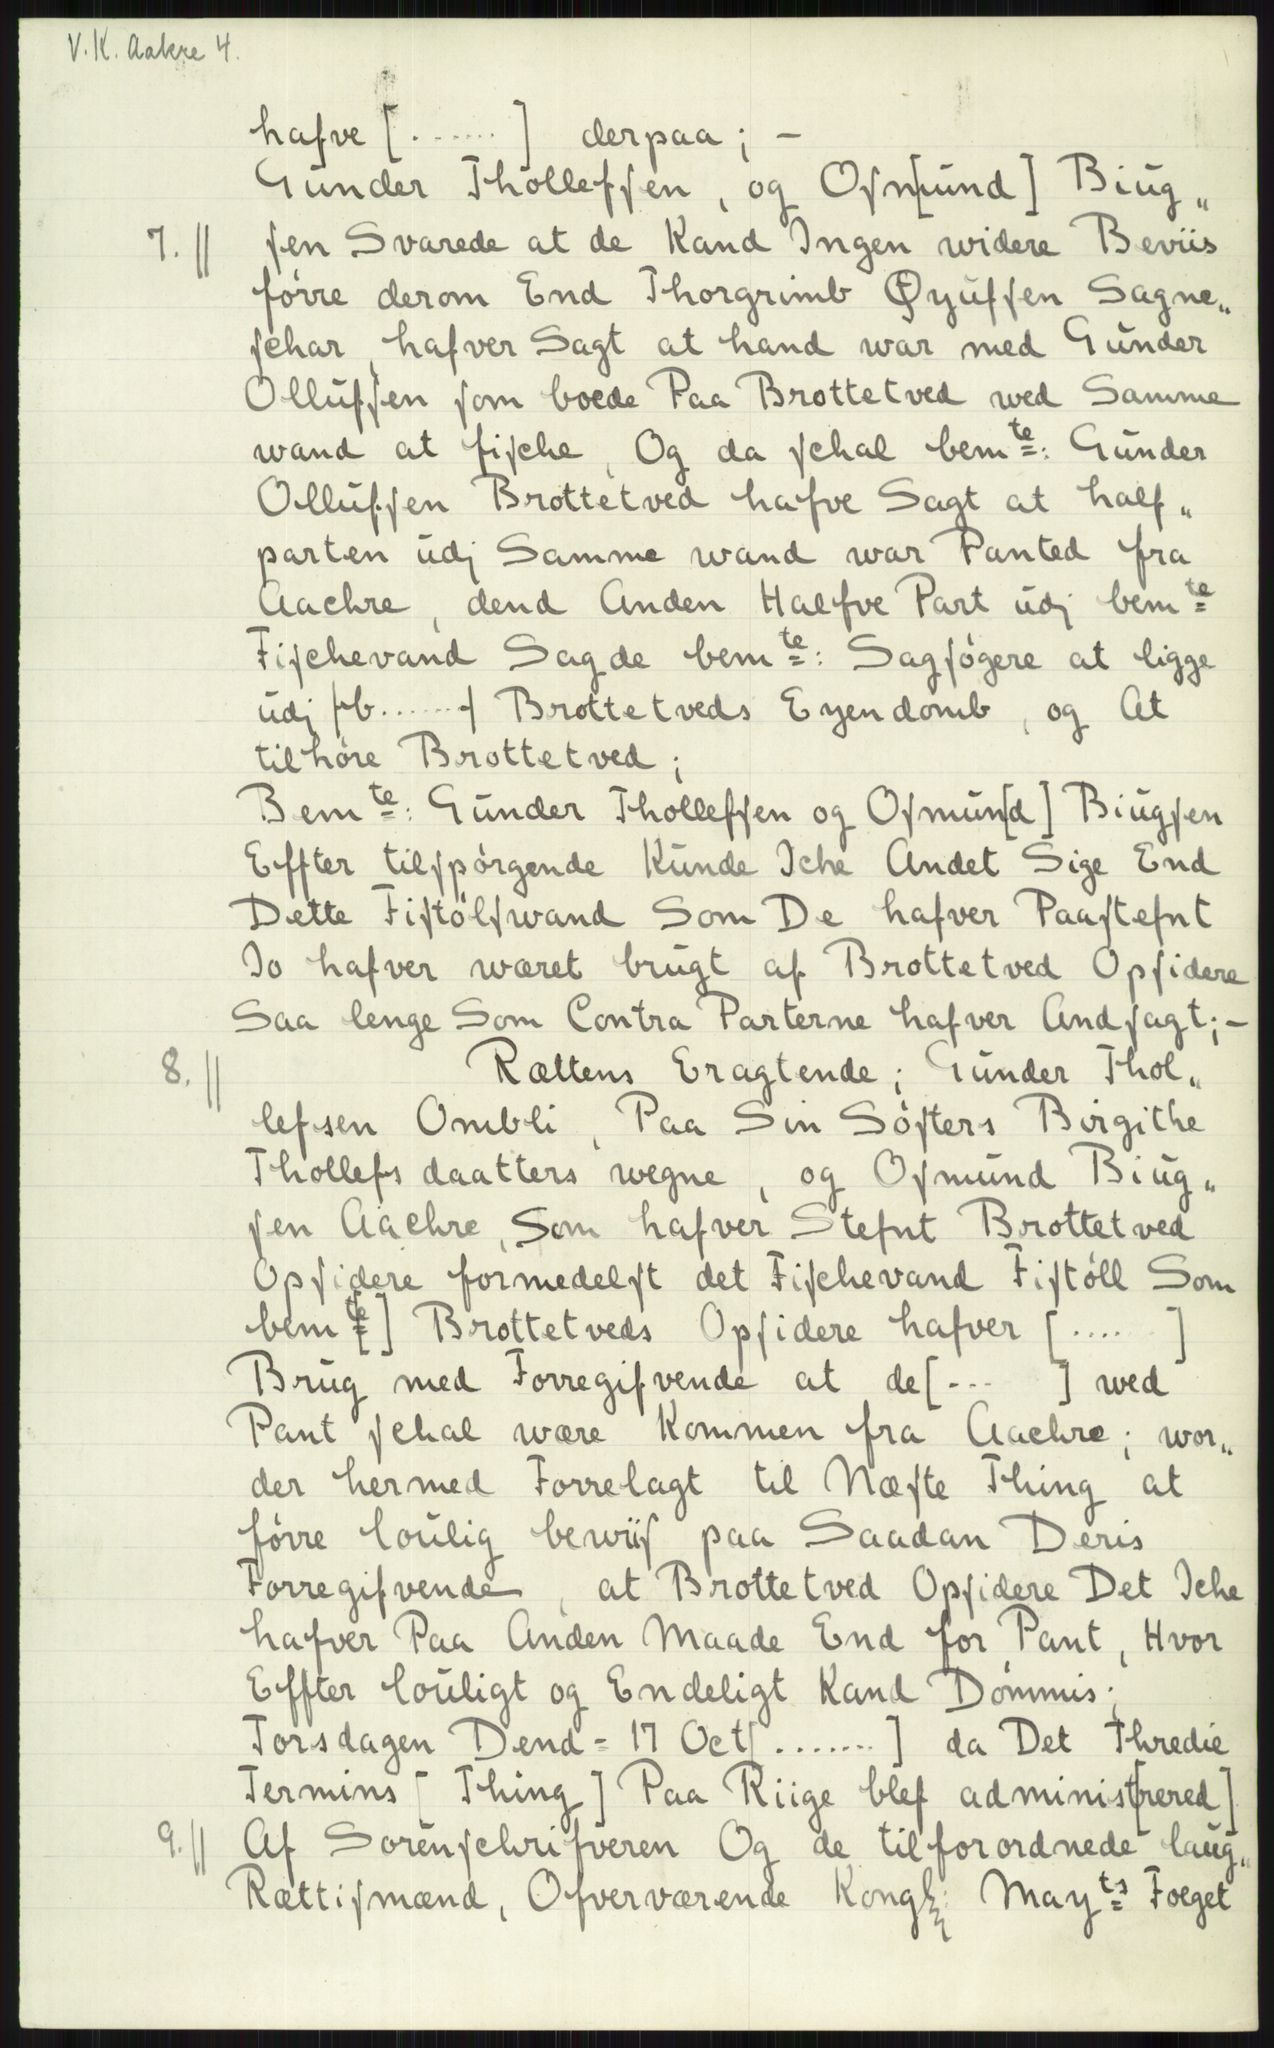 V.K. Aakre 4.
hafve [.......] derpaa; –
Gunder Thollefsen, og Osm[und] Biug„
7. || sen Svarede at de Kand Ingen widere Beviis
førre derom End Thorgrimb Øyufsen Sagne„
schar, hafver Sagt at hand war med Gunder
Ollufsen som boede Paa Brottetved wed Samme
wand at fische, Og da schal bemte: Gunder
Ollufsen Brottetved hafve Sagt at half„
parten udj Samme wand war Panted fra
Aachre, dend Anden Halfve Part udj bemte
Fischevand Sagde bemte: Sagsøgere at ligge
udj [b......] Brottetveds Eyendomb, og At
tilhøre Brottetved;
Bemte: Gunder Thollefsen og Osmun[d] Biugsen
Effter tilspørgende Kunde Iche Andet Sige End
Dette Fistølswand Som De hafver Paastefnt
Io hafver wæret brugt af Brottetved Opsidere
Saa lenge Som Contra Parterne hafver Andsagt; –
8. || Rættens Eragtende; Gunder Thol„
lefsen Ombli, Paa Sin Søsters Birgithe
Thollefs daatters wegne, og Osmund Biug„
sen Aachre, Som hafver Stefnt Brottetved
Opsidere formedelst det Fischevand Fistøll Som
bem[te] Brottetveds Opsidere hafver [.... ]
Brug med Forregifvende at de[... ] wed
Pant schal wære Kommen fra Aachre; wor„
der hermed Forrelagt til Næste Thing at
førre loulig bewiis paa Saadan Deris
Forregifvende, at Brottetved Opsidere Det Iche
hafver Paa Anden Maade End for Pant, Hvor
Effter louligt og Endeligt Kand Dømmis;
Torsdagen Dend = 17 Oct[.......] da Det Thredie
Termins [Thing] Paa Riige blef administ[rered]
9. || Af Sorenschrifveren Og de tilforordnede laug„
Rættismænd, Ofverværende Kongl: Mayts Foeget